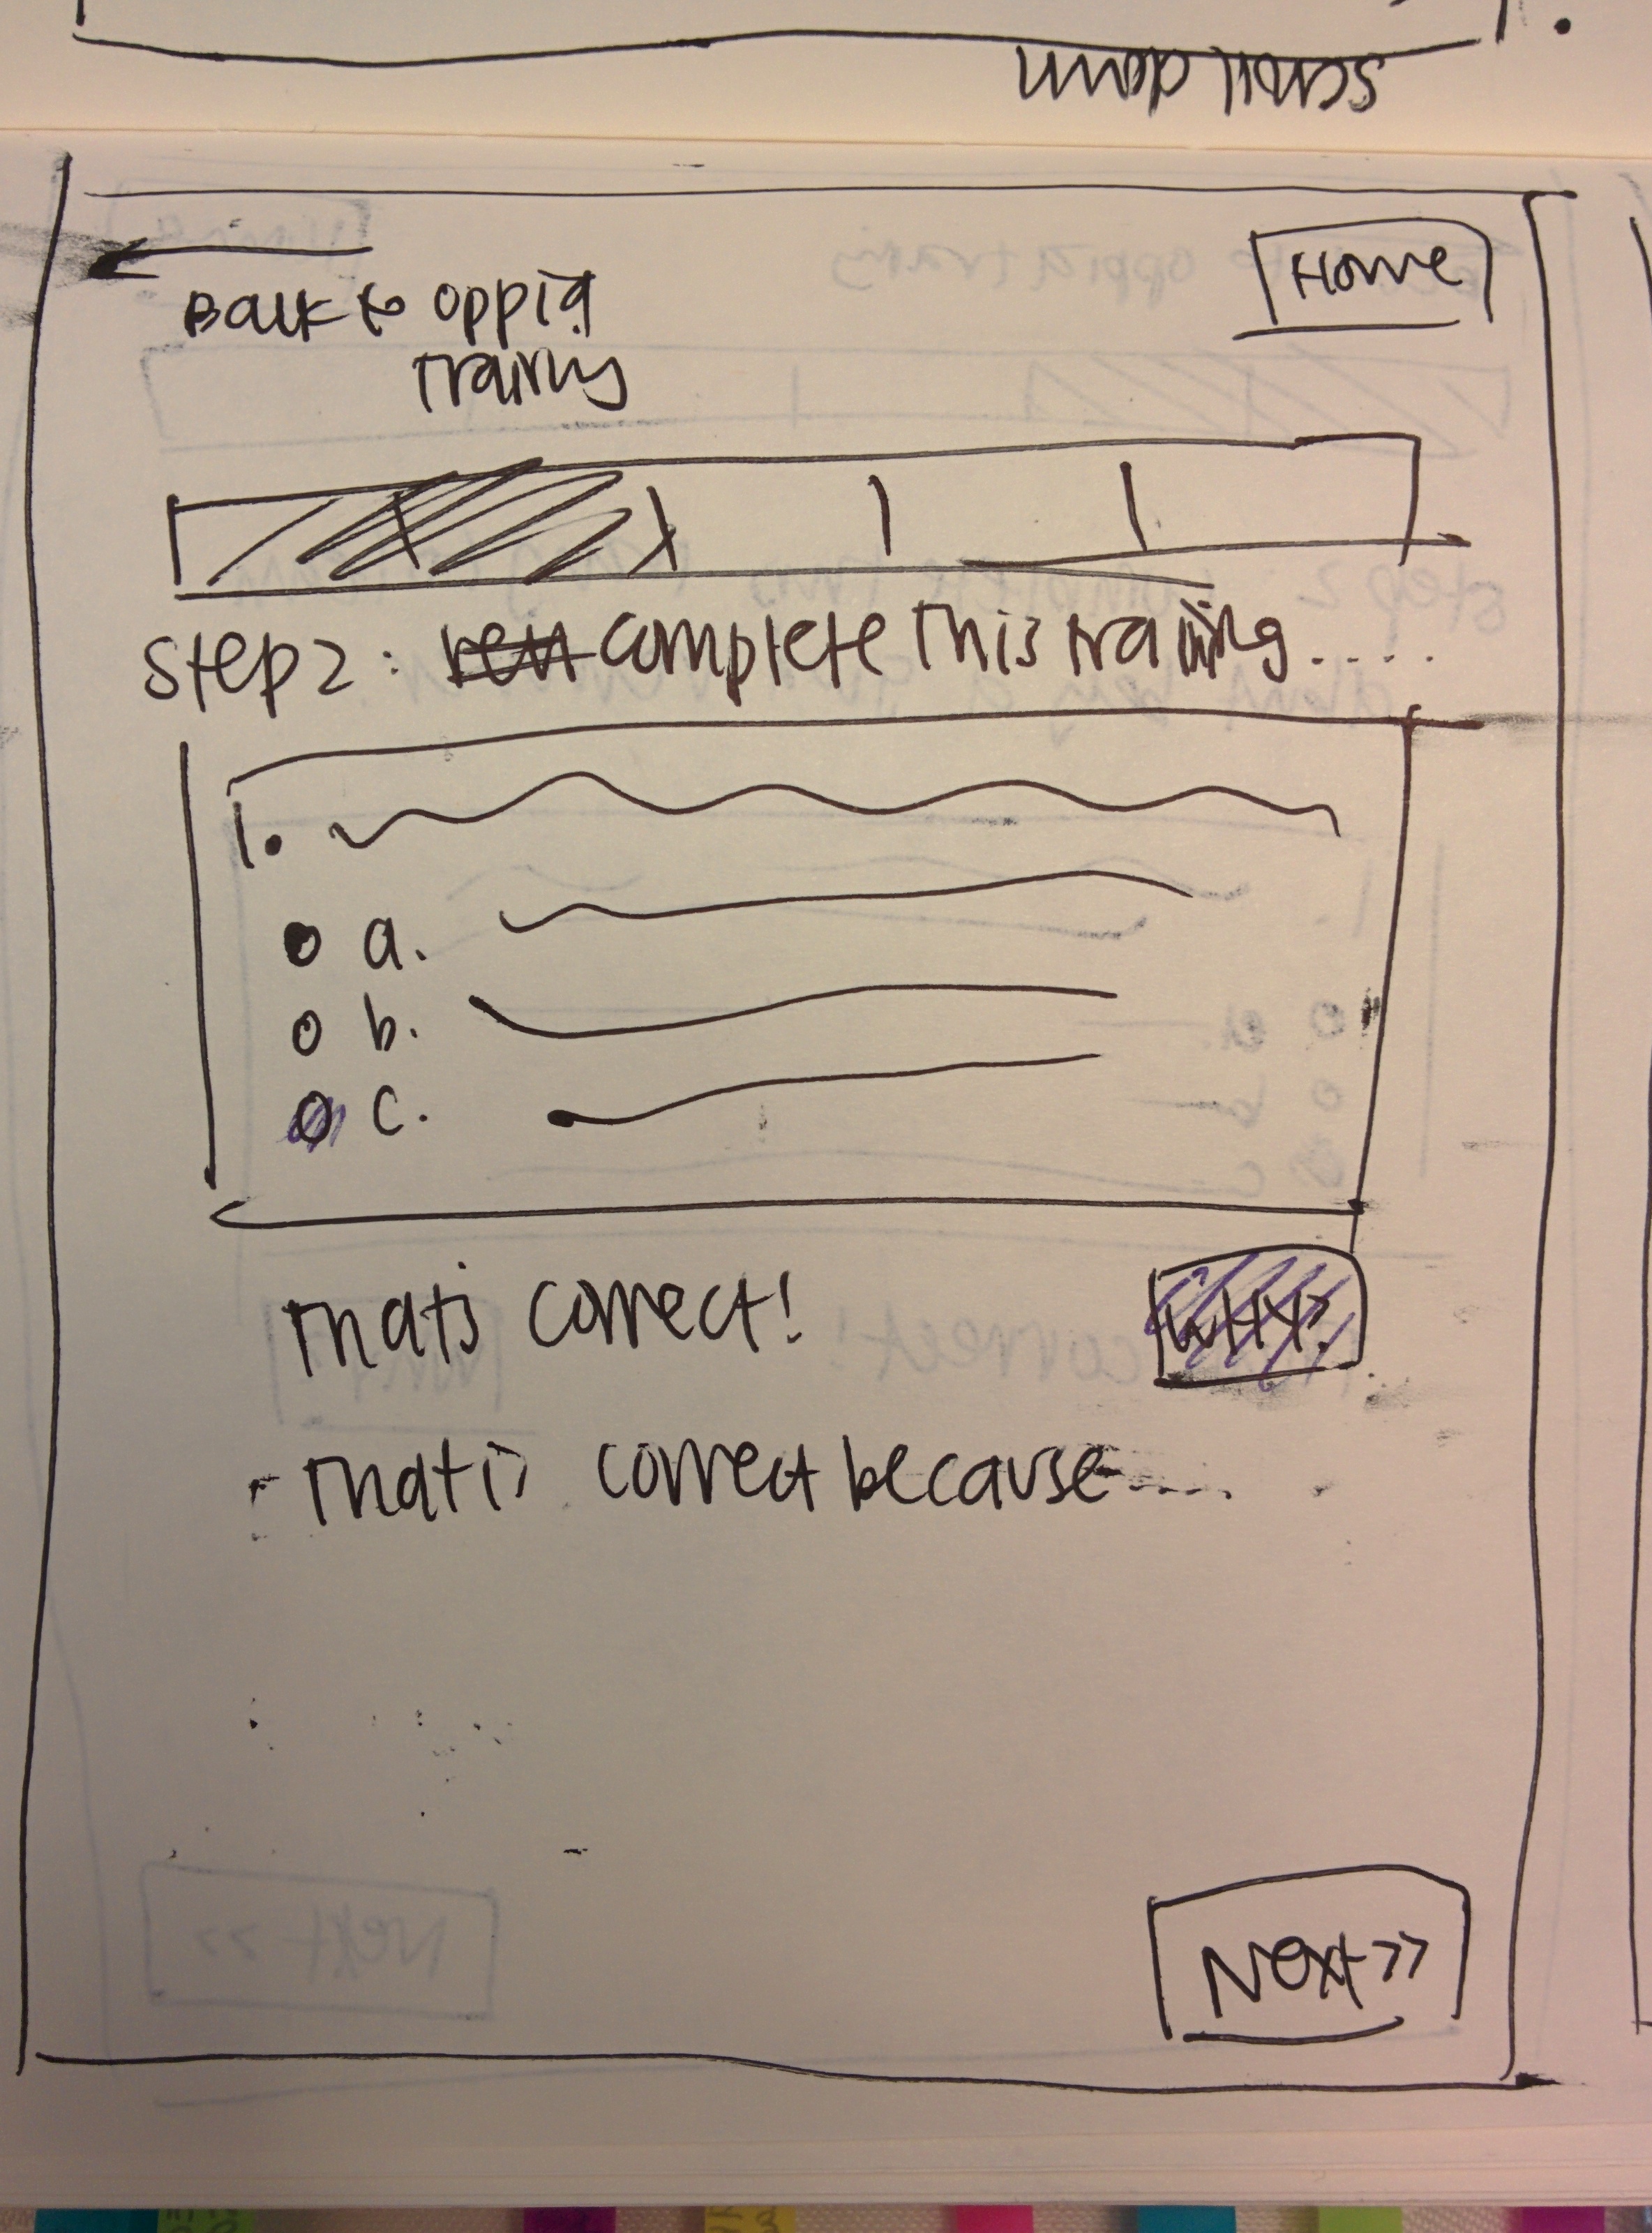 scroll down
Back to oppia
training
Home
Step 2: complete this training....
1.
a.
b.
c.
that's correct!
WHY?
- that is correct because....
Next >>